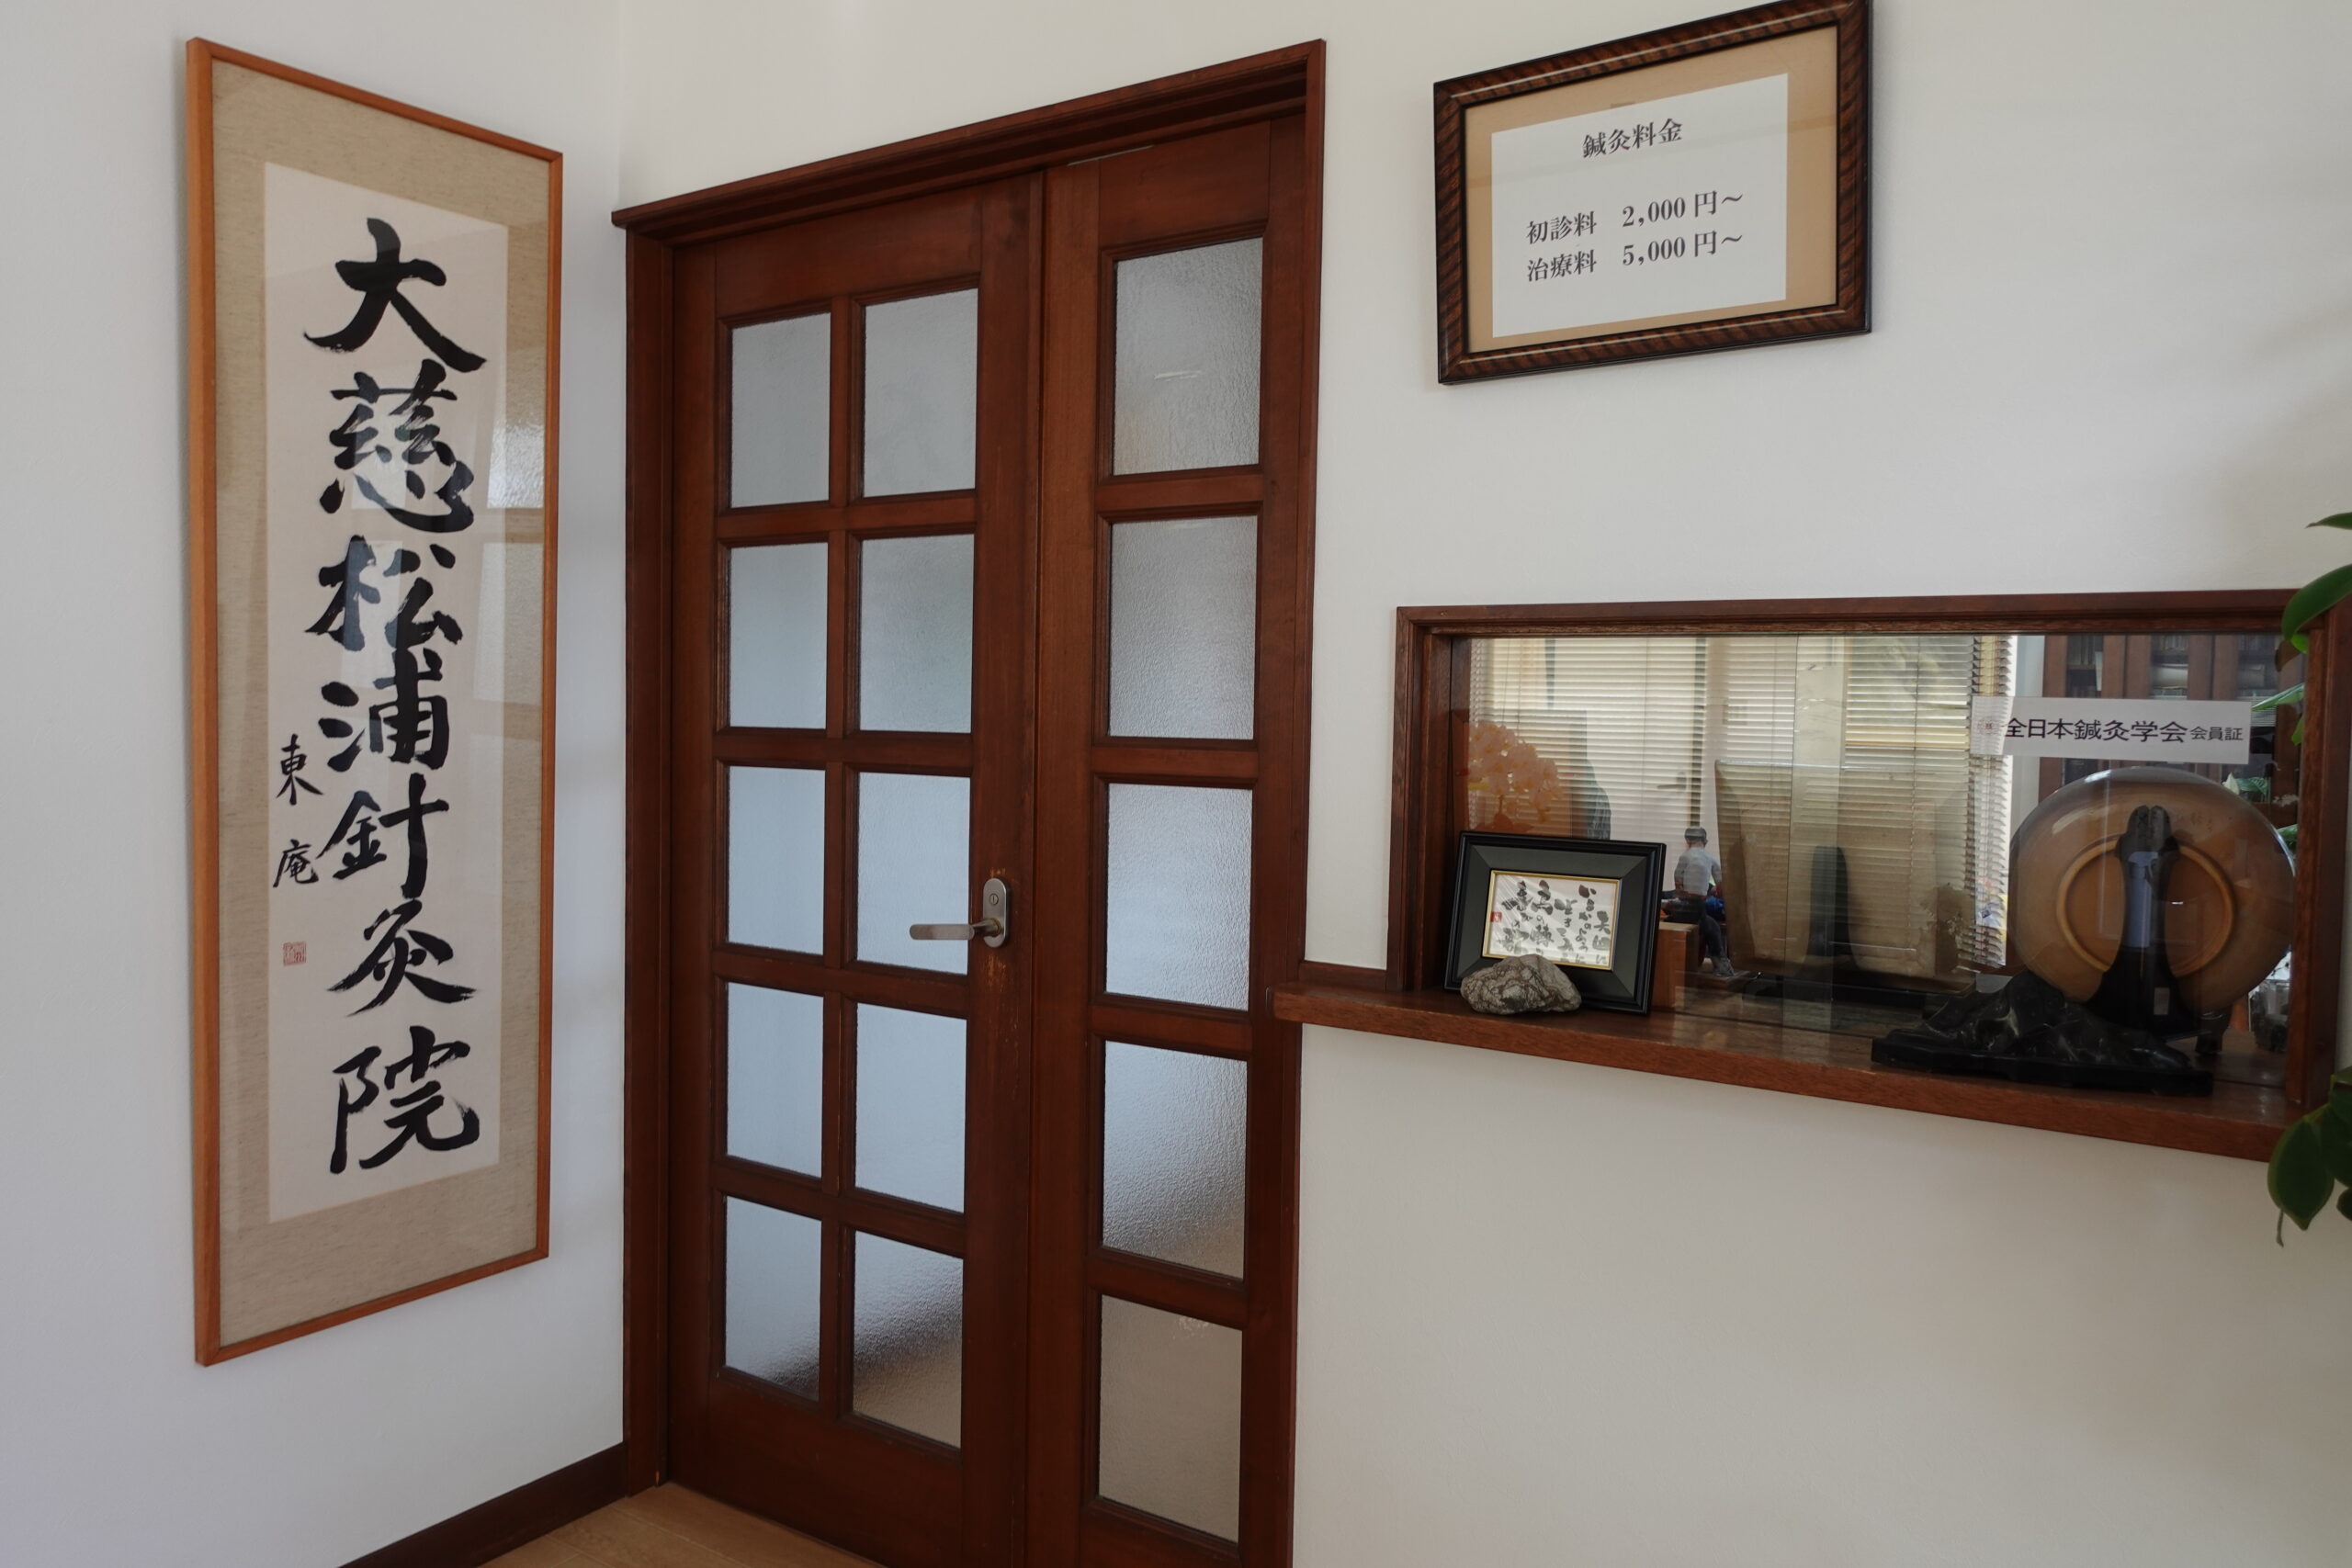 大慈松浦針灸院
東庵
鍼灸料金
初診料 2,000円～
治療料 5,000円～
全日本鍼灸学会 会員証